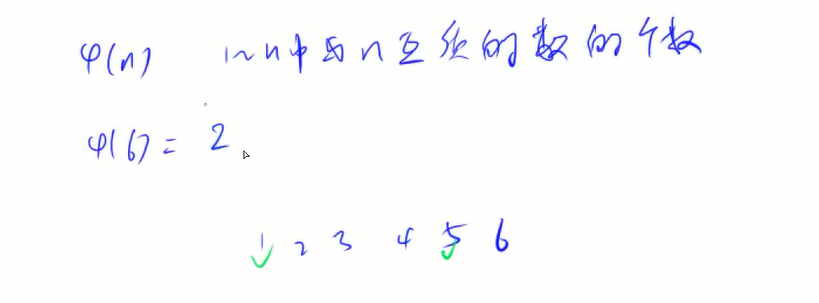 φ(n) 1~n中与n互质的数的个数
φ(6) = 2
1 2 3 4 5 6